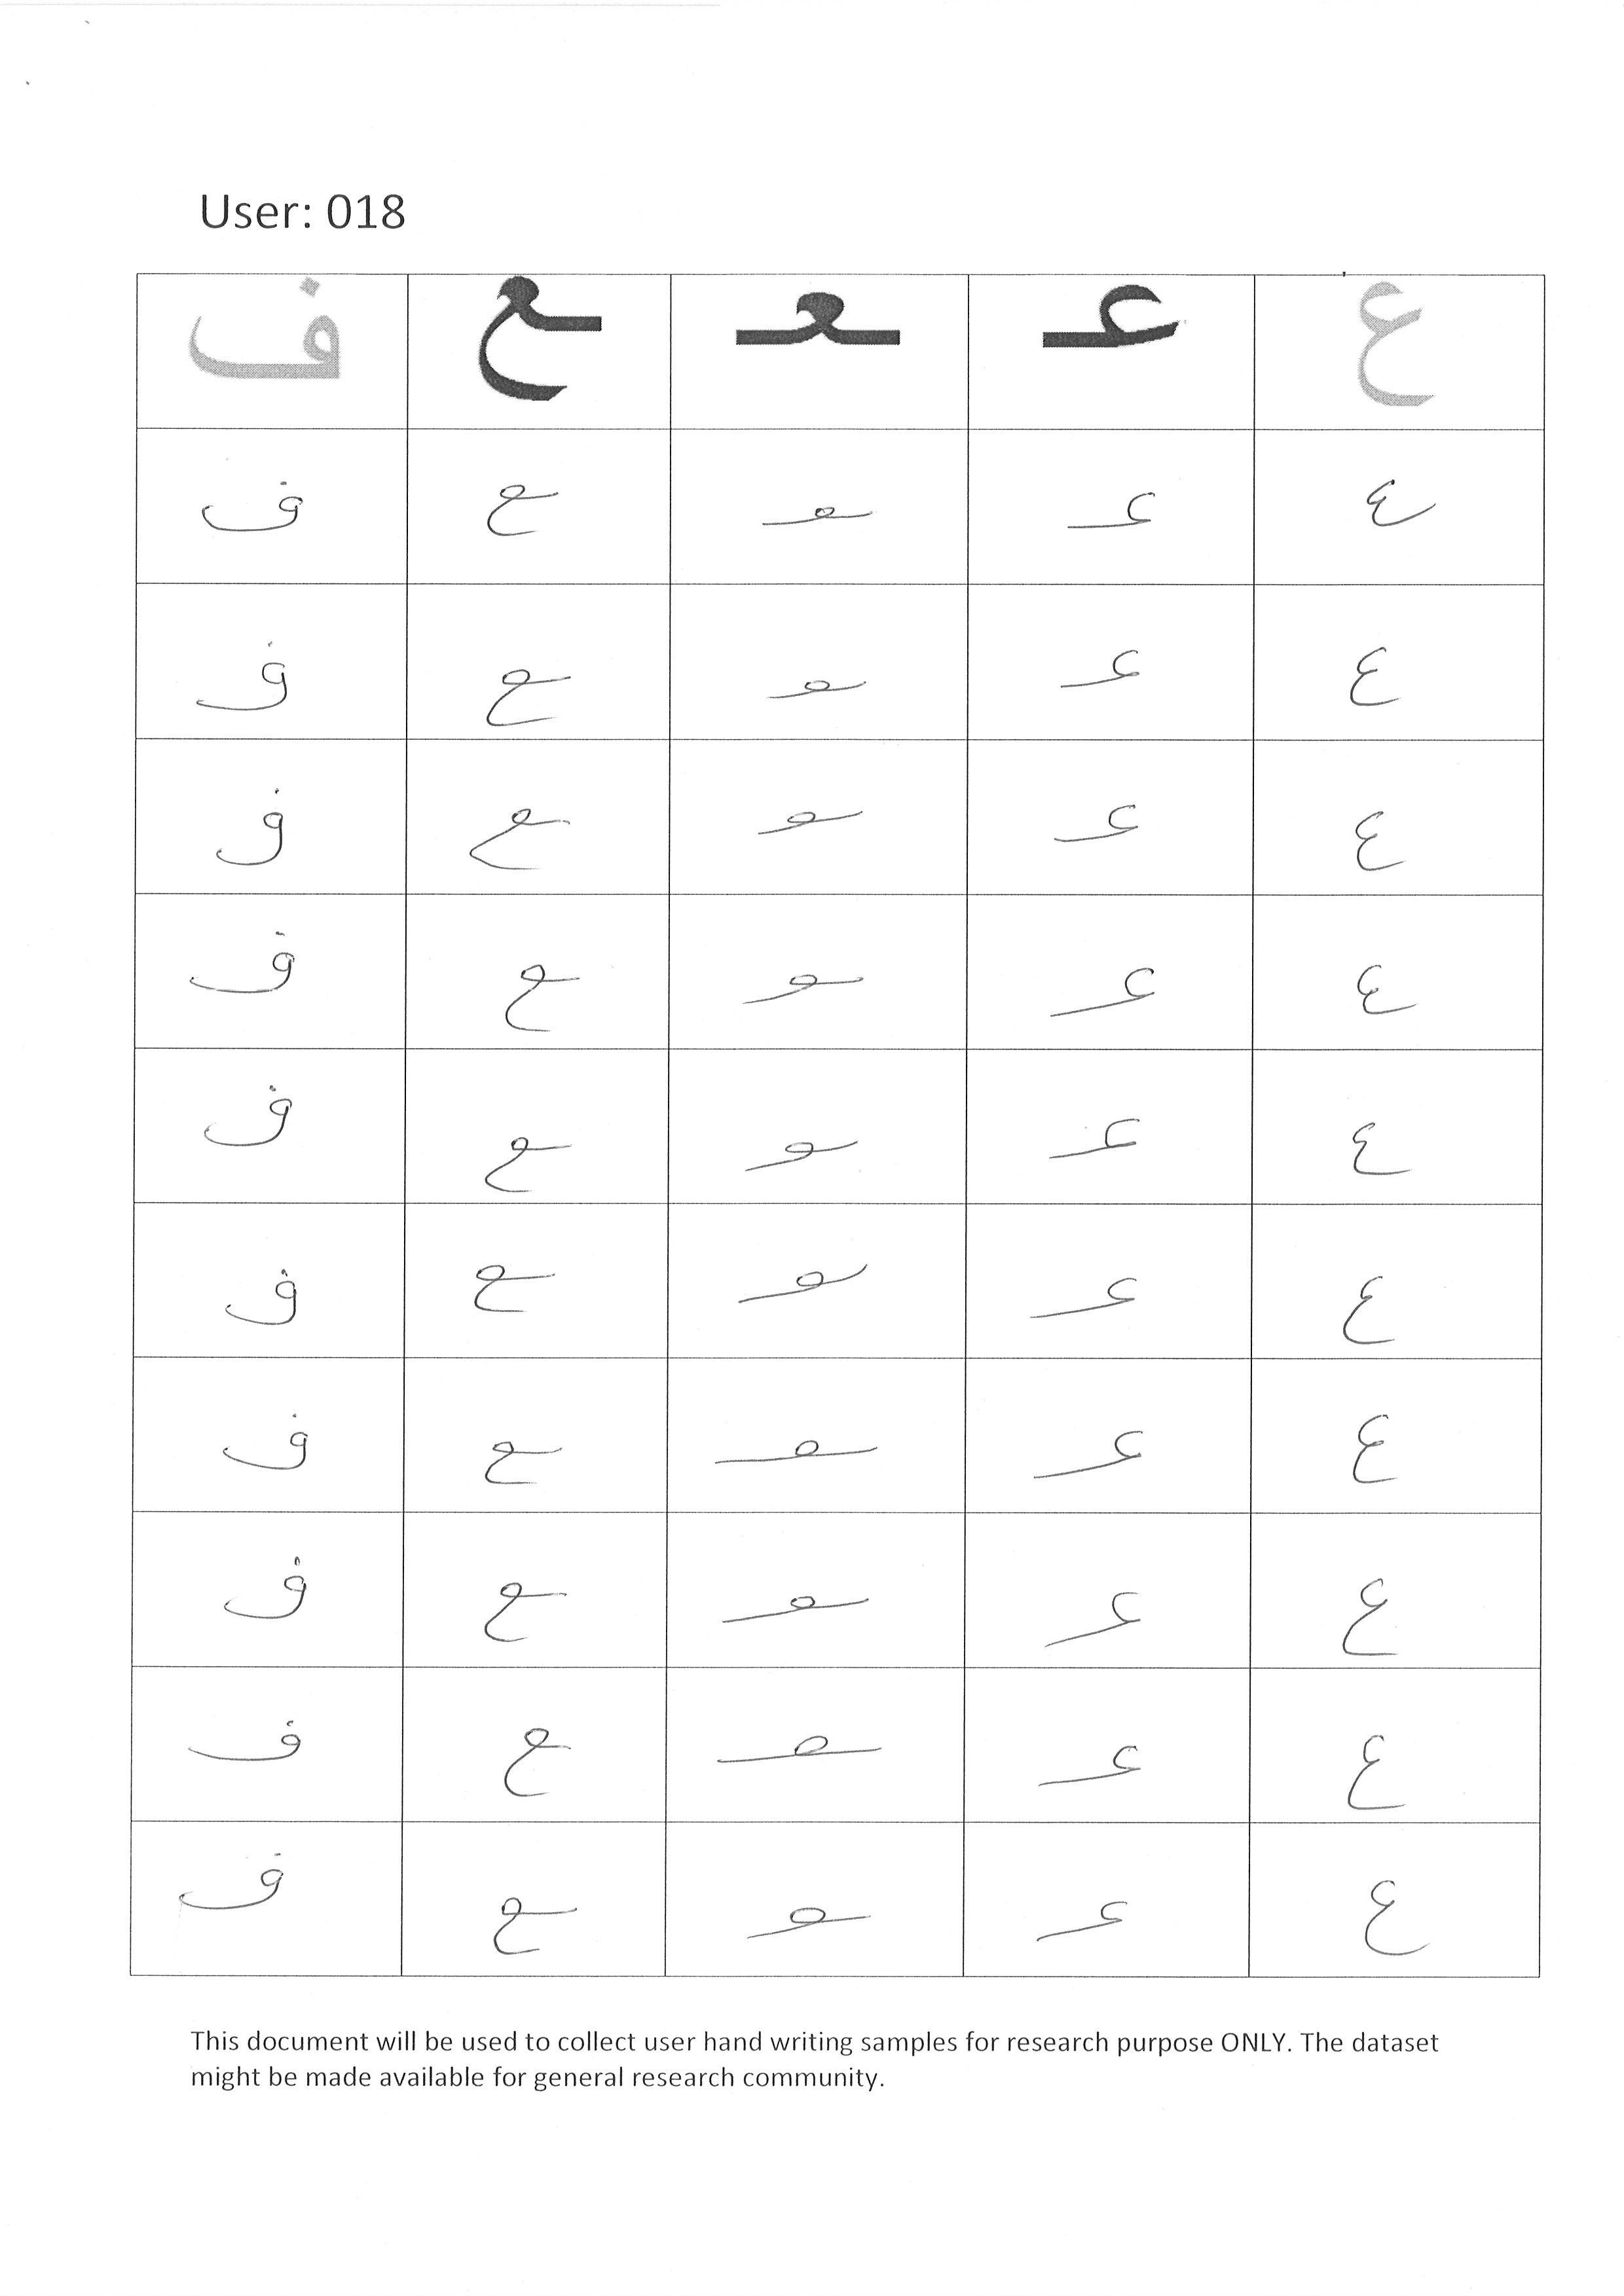 User: 018
ع عـ ـعـ ـع ف
ع عـ ـعـ ـع ف
ع عـ ـعـ ـع ف
ع عـ ـعـ ـع ف
ع عـ ـعـ ـع ف
ع عـ ـعـ ـع ف
ع عـ ـعـ ـع ف
ع عـ ـعـ ـع ف
ع عـ ـعـ ـع ف
ع عـ ـعـ ـع ف
ع عـ ـعـ ـع ف
This document will be used to collect user hand writing samples for research purpose ONLY. The dataset
might be made available for general research community.